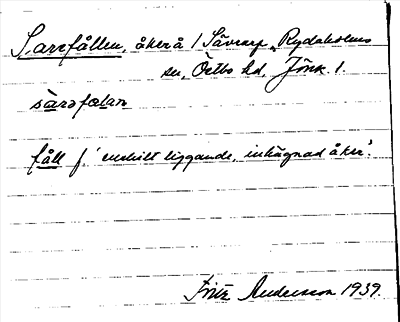 Sarrfållen, åker å 1 Sävrarp, Rydaholms
sn, Östbo hd, Jönk. l.
sàrrfɷlan
fåll f. 'enskilt liggande, inhägnad åker'.
Fritz Andersson 1939.